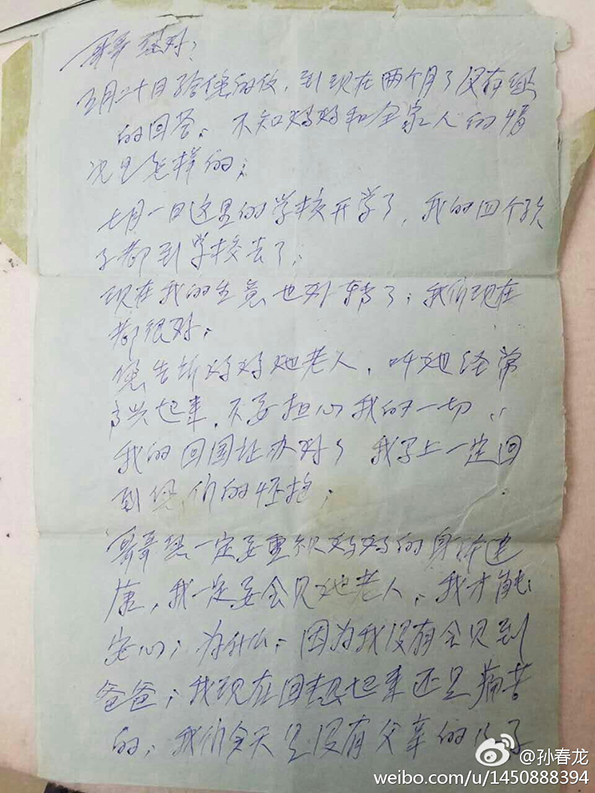 哥哥您好：
五月二十日给您的信，到现在两个月了没有组
的回答。不知妈妈和全家人的情
况是怎样的；
七月一日这里的学校开学了，我的四个孩
子都到学校去了；
现在我的生意也好转了；我们现在
都很好；
您告诉妈妈她老人，叫她经常
高兴起来，不要担心我的一切，
我的回国证办好了 我马上一定回
到您们的怀抱；
哥哥您一定要重视妈妈的身体健
康，我一定要会见她老人，我才能
安心；为什么；因为我没有会见到
爸爸；我现在回想起来还是痛苦
的；我们今天是没有父亲的儿子
@孙春龙
weibo.com/u/1450888394